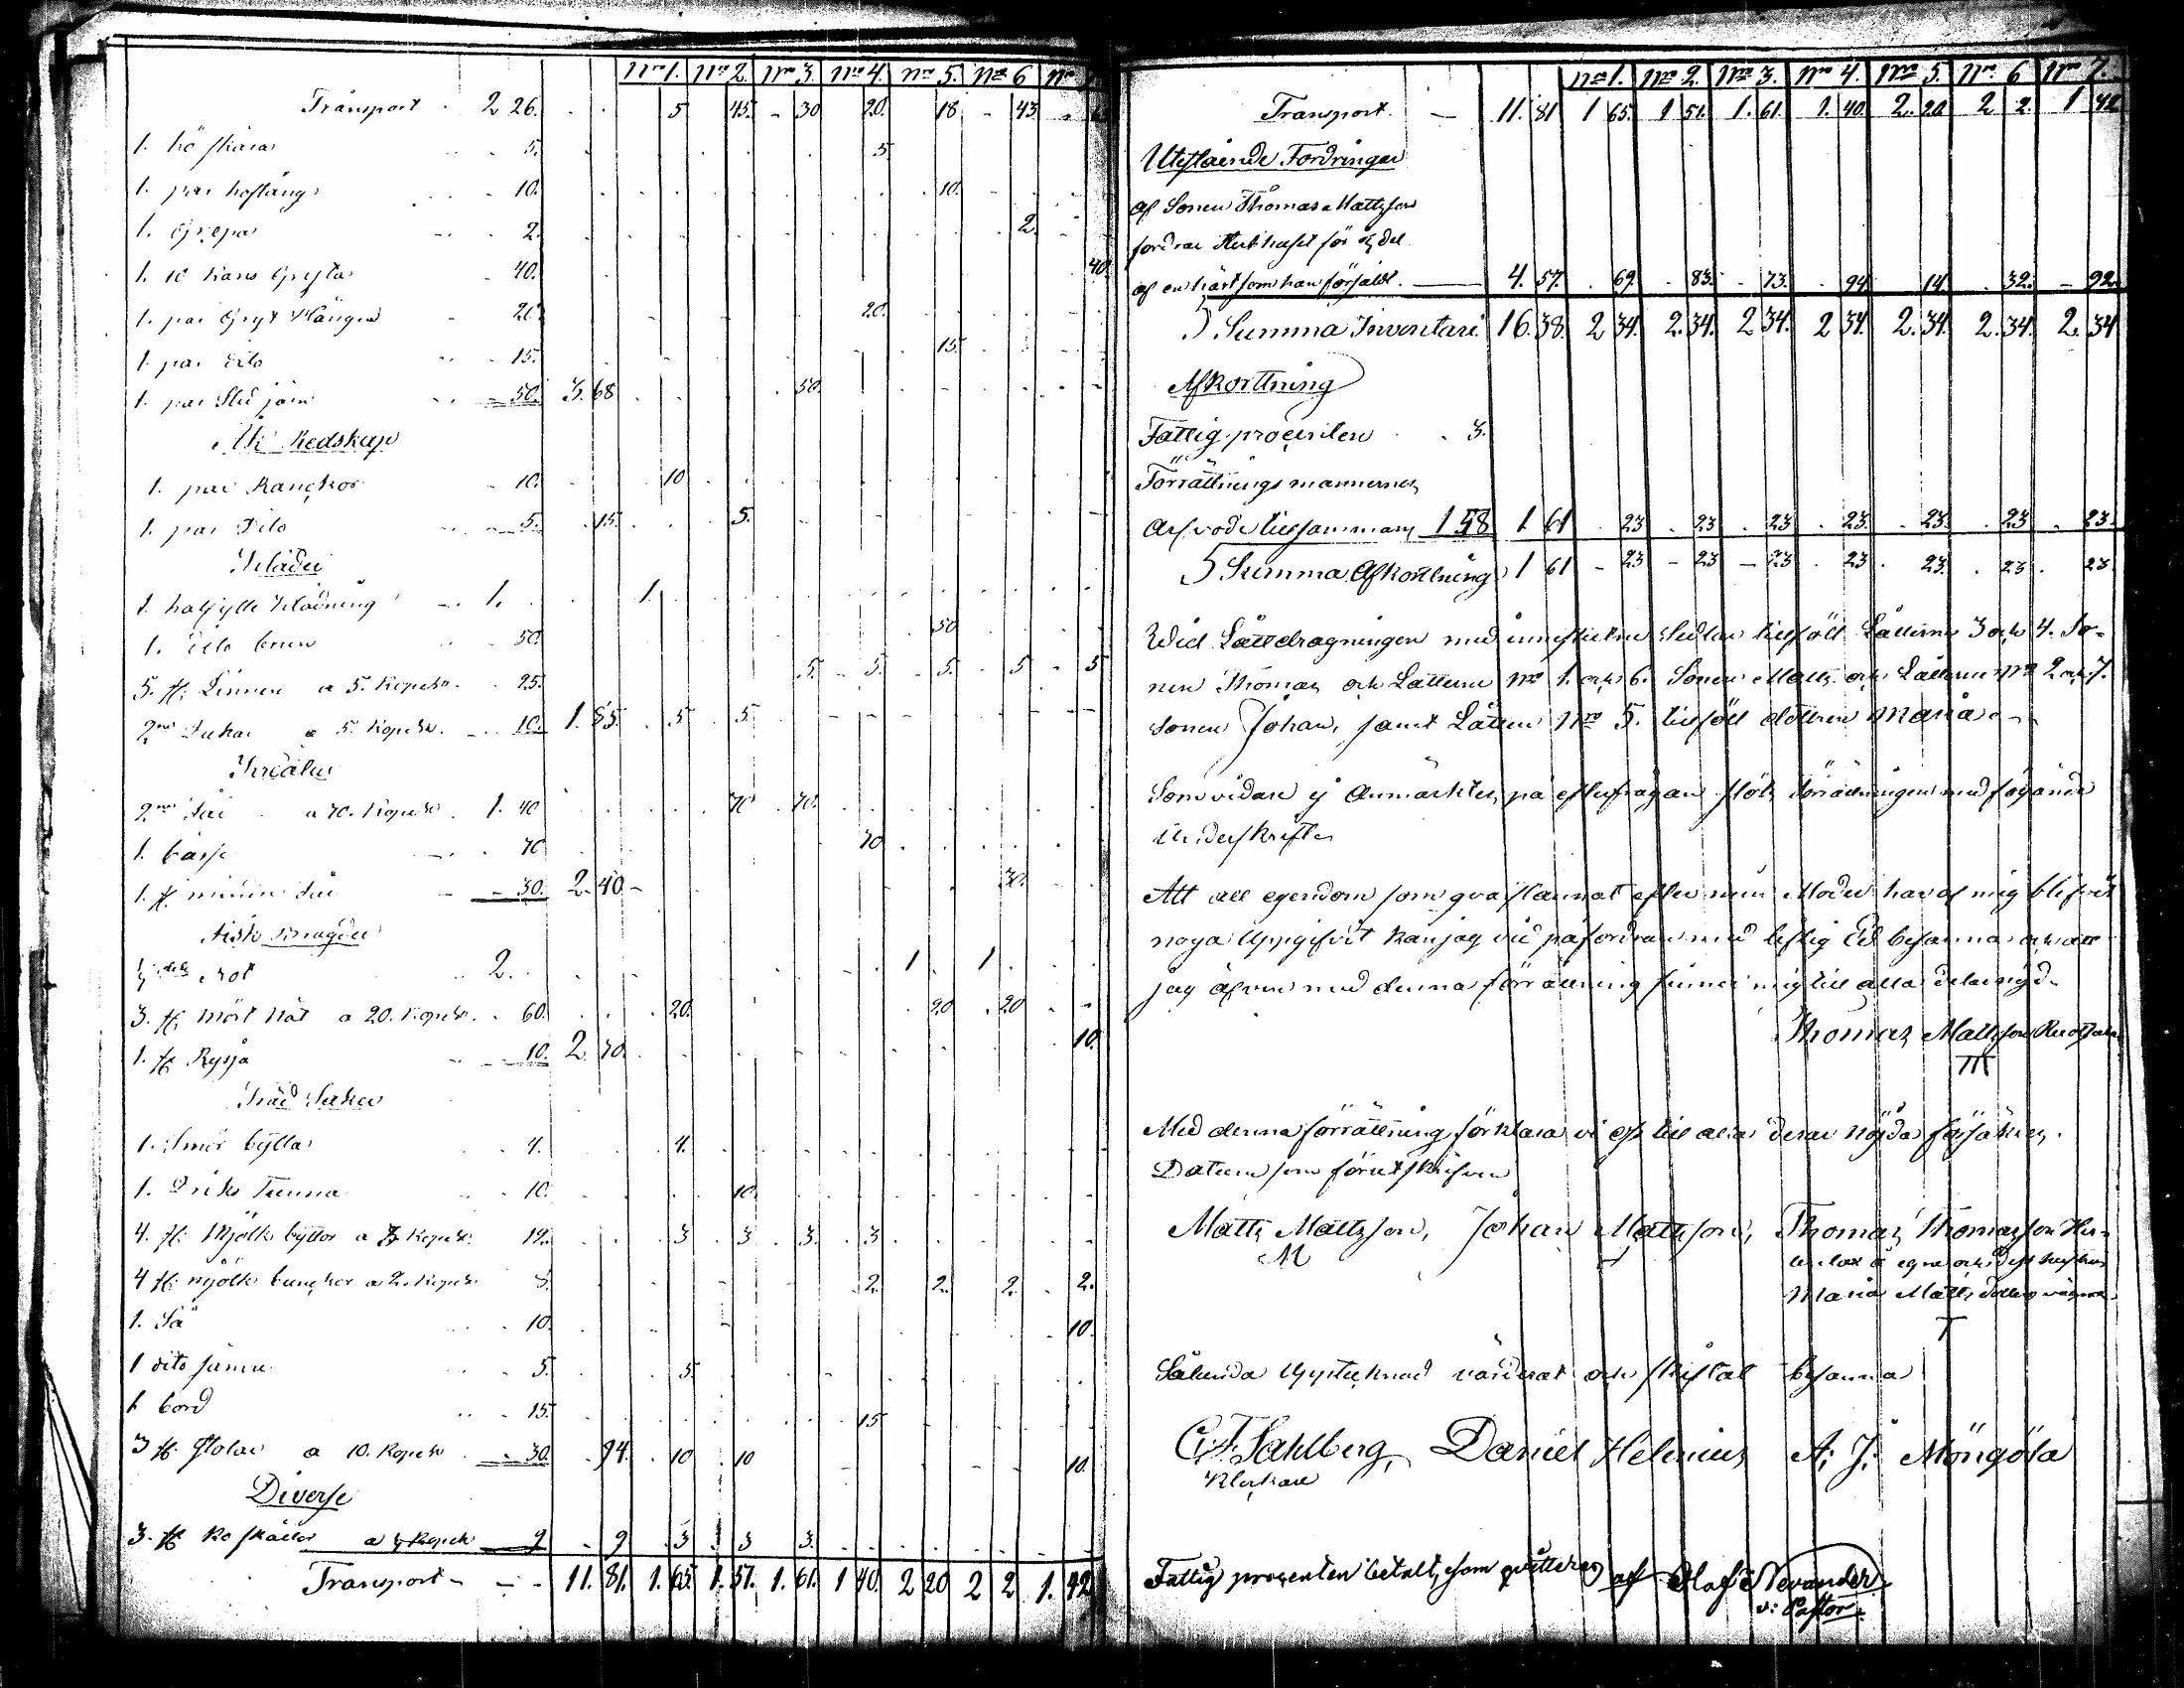 No 1. No 2. No 3. No 4. No 5. No 6 No
Transport 2 26. 5 45. 30 20. 18 43
1. 5. 5
1. par 10. 10.
1. Grepa 2. 2.
1. 10 Kans Gryta 40. 40.
1. par Gryt Hängen 20 20.
1. par dito 15. 15.
1. par 50. 3. 68 50.
Åk Redskap
1. par 10. 10
1. par Dito 5. 15. 5.
Kläder
1. halfylle Klädning 1. 1.
1. dito 50. 50
5. st. Linnen a 5. Kopek. 25. 5. 5. 5. 5 5
2ne Dukar a 5. Kopek. 10. 1. 85. 5. 5.
Kreatur
2ne Får a 70. Kopek. 1. 40 70 70.
1. 70 70
1. st. mindre Får 30. 2. 40. 30.
Fisk
Not 2. 1 1
3. st. Mört Nät a 20. Kopek. 60. 20. 20 20
1. st. Rysja 10. 2. 70. 10.
Träd Saker
1. Smör bytta 4. 4.
1. Driks Tunna 10. 10.
4. st. Mjölk byttor a 3 Kopek. 12. 3 3 3. 3
4 st. mjölk a 2. Kopek 8. 2. 2. 2. 2.
1. Så 10. 10.
1 dito sämre 5. 5.
1 bord 15. 15
3 st. Stolar a 10. Kopek 30. 94. 10 10 10
Diverse
3. st. Ko skällor a 3 Kopek 9 9 3 3 3.
Transport 11. 81. 1. 65 1. 51. 1. 61. 1 40. 2 20 2 2 1. 42
No 1. No 2. No 3. No 4. No 5. No 6 No 7.
Transport. 11. 81 1 65. 1 51. 1. 61. 1. 40. 2. 20. 2 2. 1 42
Utestående Fordringar
af Sonen Thomas Mattsson
fordrar Sterbhuset för del
af en häst som han försåldt. 4. 57. 69. 83. 73. 94 14. 32. 92.
Summa Inventarii 16. 38. 2 34. 2. 34. 2 34. 2 34. 2. 34. 2. 34. 2. 34
Afkorttning
Fattig procenten 3.
Förrättningsmännernes
arfvode tillsammans 1 58 1. 61 23 23 23 23. 23. 23 23.
Summa Afkorttning 1 61 23 23 23 23 23. 23 23
Wid Låttdragningen med sedlar tillföll Låtterne 3 och 4. So-
nen Thomas och Låtterne No 1. och 6. Sonen Matts och Låtterne No 2 och 7.
sonen Johan, samt Låtten No 5. tillföll dottren Maria.
Som vidare ej anmärktes, på efterfrågan slöts förrättningen med följande
underskrifter
Att all egendom som qvarstannat efter min Moder har af mig blifvit
noga uppgifvit kan jag vid påfordran med liflig Ed besanna och att
jag äfven med denna förrättning finner mig till alla delar nöjd.
Thomas Mattsson
Med denna förrättning förklara vi oss till alla delar nöjda försäkras.
Datum som förut skrifven
Matts Mattsson, Johan Mattsson, Thomas Thomasson
M
å egna och dess hustrus
Maria Matts dotters vägnar.
T
Sålunda Upptecknad värderat och skiftat besanna
C. F. Sahlberg, Daniel Helenius A. J. Möngölä
Klockare
Fattig procenten betalt, som qvitteras af Olof Nevander
v: Pastor.